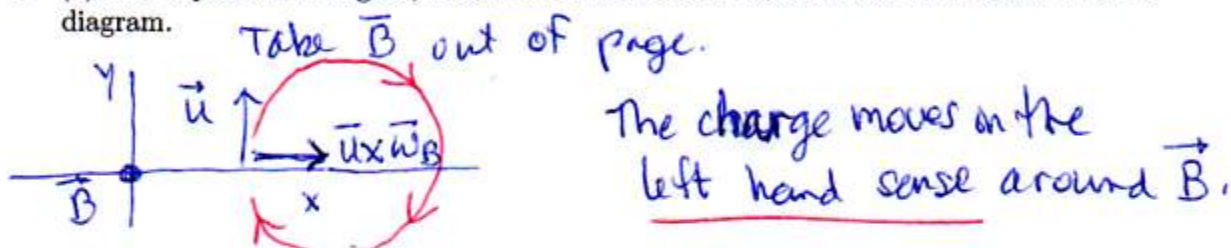 diagram.
Take B⃗ out of page.
y
u⃗
u⃗ x ω⃗_B
B⃗
x
The charge moves in the
left hand sense around B⃗.